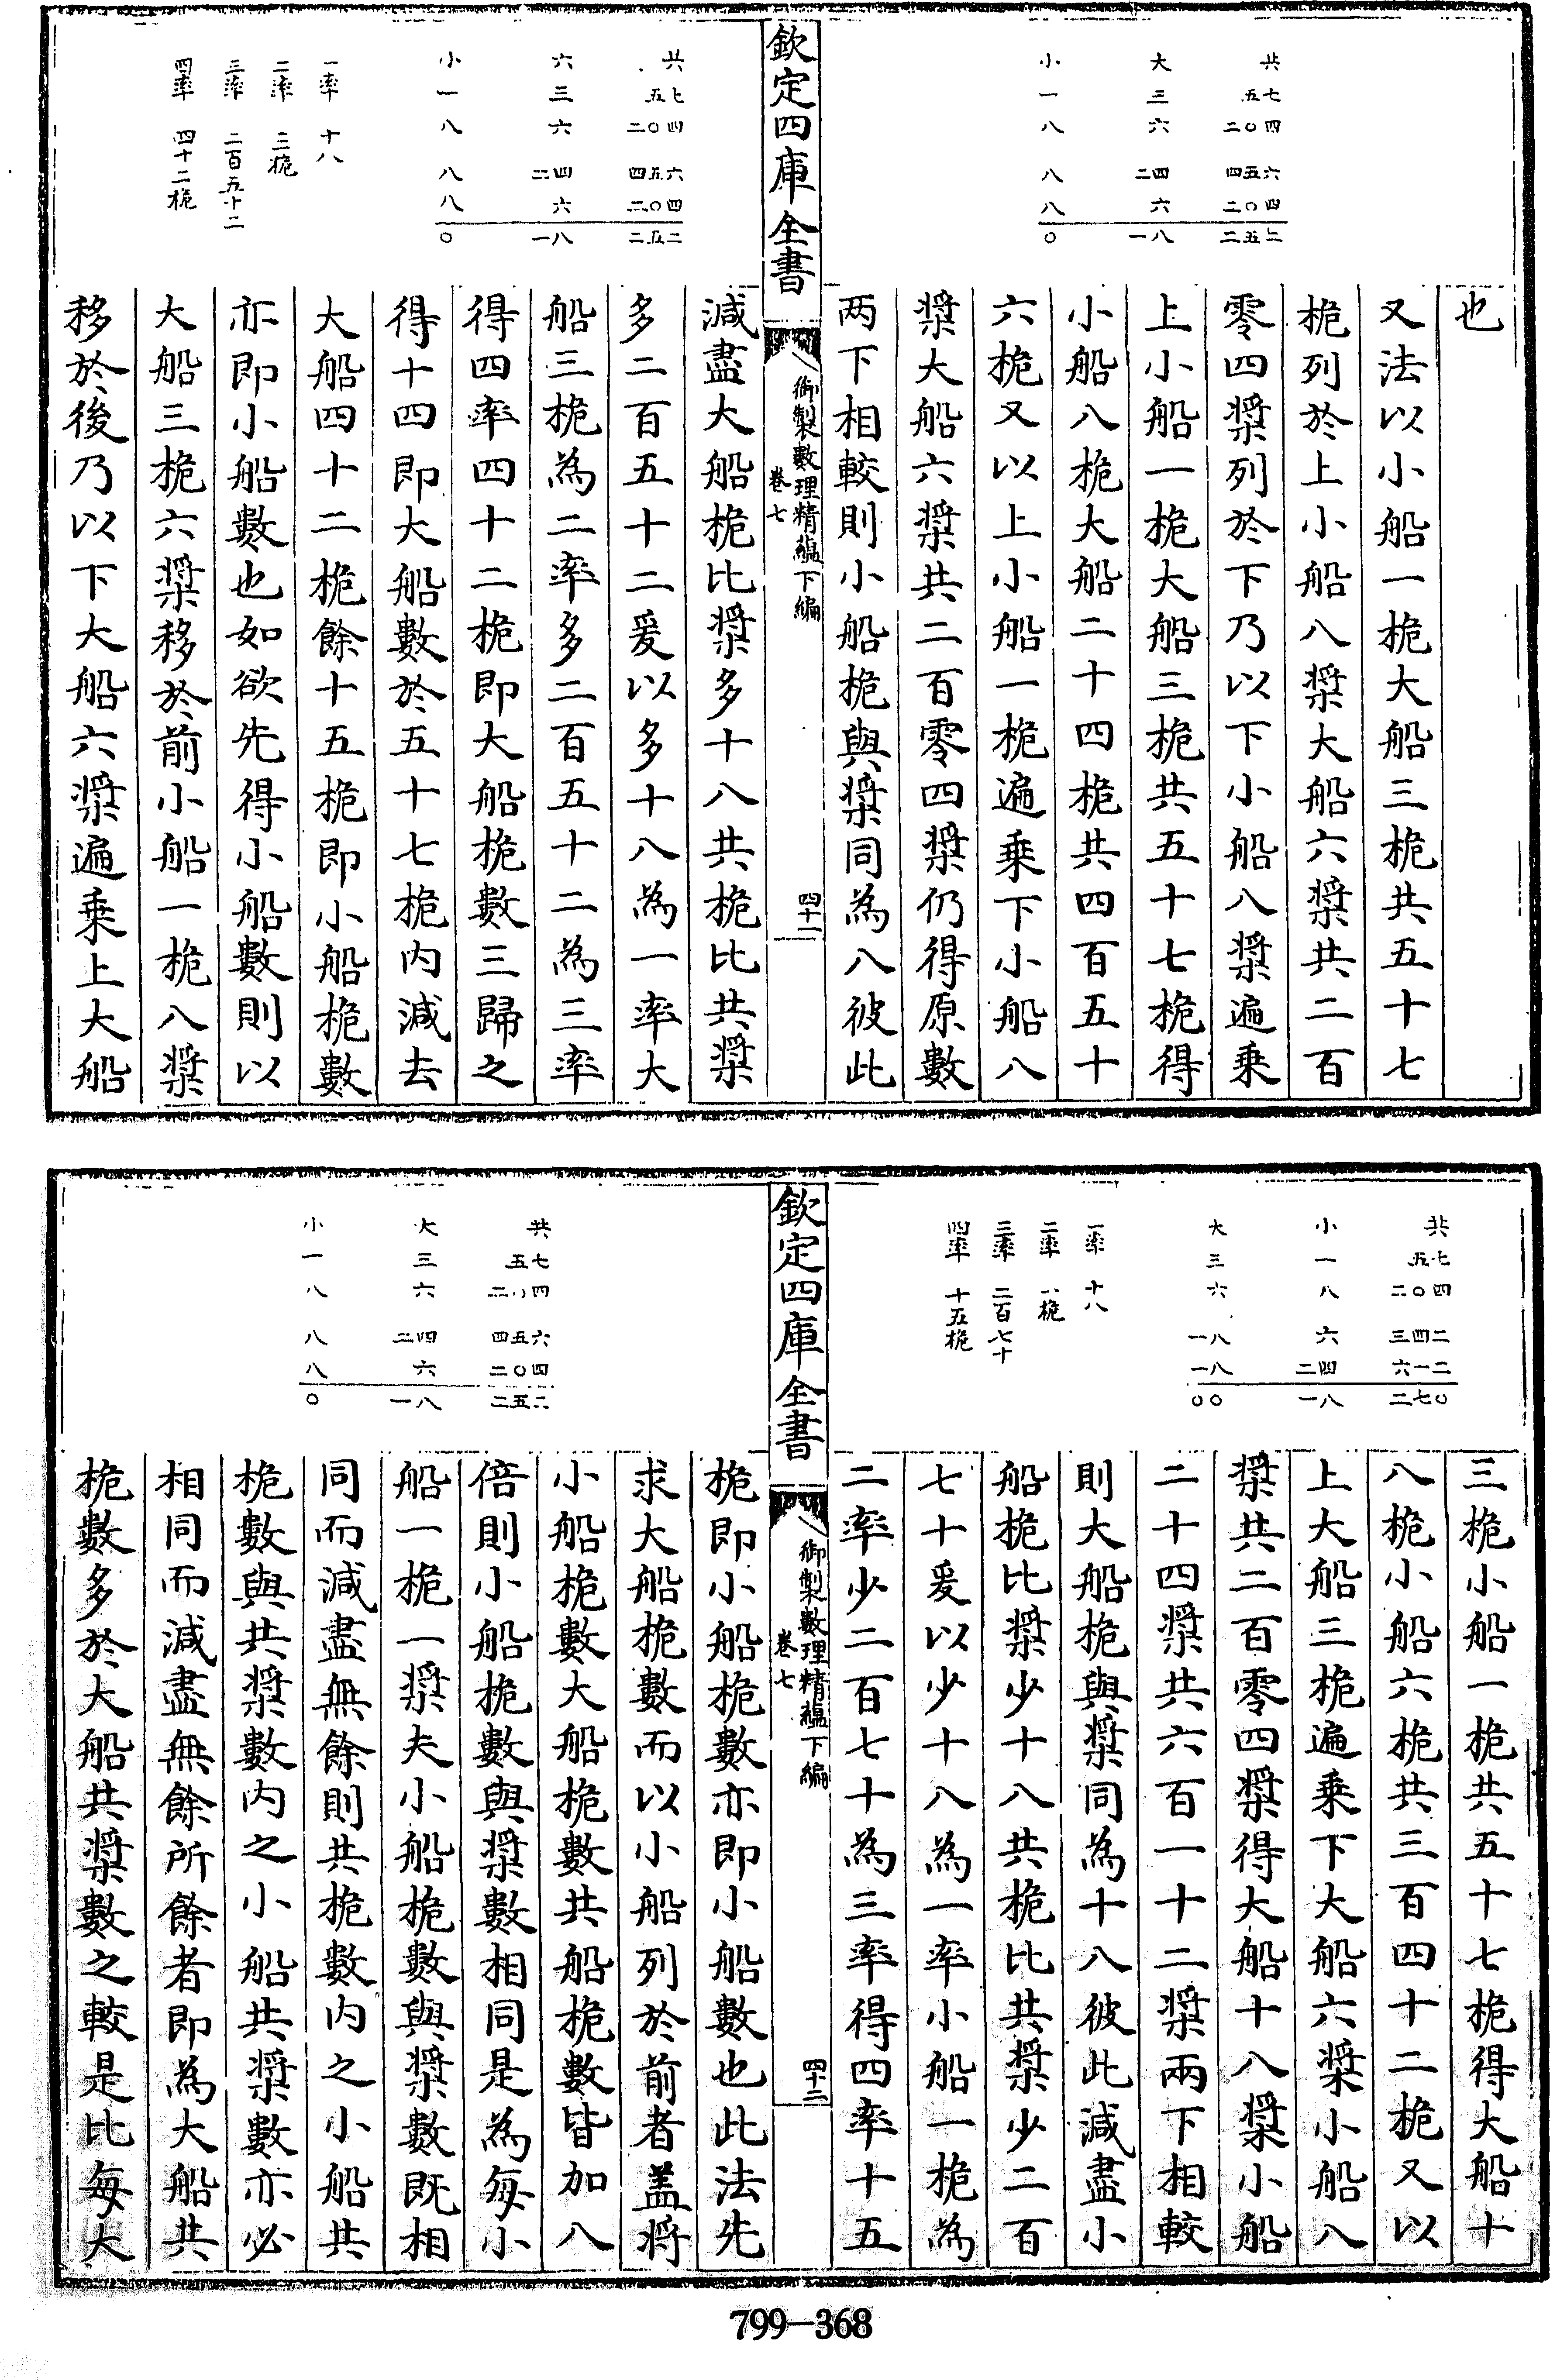 共 五七 二〇四 四五六 二〇四 二五二
大 三 六 二四 六 一八
小 一 八 八 八 〇
也
又法以小船一桅大船三桅共五十七
桅列於上小船八槳大船六槳共二百
零四槳列於下乃以下小船八槳遍乗
上小船一桅大船三桅共五十七桅得
小船八桅大船二十四桅共四百五十
六桅又以上小船一桅遍乗下小船八
槳大船六槳共二百零四槳仍得原數
两下相較則小船桅與槳同為八彼此
欽定四庫全書
御製數理精蘊下編
卷七
四十一
共 五七 二〇四 四五六 二〇四 二五二
六 三 六 二四 六 一八
小 一 八 八 八 〇
一率 十八
二率 三桅
三率 二百五十二
四率 四十二桅
減盡大船桅比槳多十八共桅比共槳
多二百五十二爰以多十八為一率大
船三桅為二率多二百五十二為三率
得四率四十二桅即大船桅數三歸之
得十四即大船數於五十七桅内減去
大船四十二桅餘十五桅即小船桅數
亦即小船數也如欲先得小船數則以
大船三桅六槳移於前小船一桅八槳
移於後乃以下大船六槳遍乗上大船
共 五七 二〇四 三四二 六一二 二七〇
小 一 八 六 二四 一八
大 三 六 一八 一八 〇〇
一率 十八
二率 一桅
三率 二百七十
四率 十五桅
三桅小船一桅共五十七桅得大船十
八桅小船六桅共三百四十二桅又以
上大船三桅遍乗下大船六槳小船八
槳共二百零四槳得大船十八槳小船
二十四槳共六百一十二槳兩下相較
則大船桅與槳同為十八彼此減盡小
船桅比槳少十八共桅比共槳少二百
七十爰以少十八為一率小船一桅為
二率少二百七十為三率得四率十五
欽定四庫全書
御製數理精蘊下編
卷七
四十二
共 五七 二〇四 四五六 二〇四 二五二
大 三 六 二四 六 一八
小 一 八 八 八 〇
桅即小船桅數亦即小船數也此法先
求大船桅數而以小船列於前者盖將
小船桅數大船桅數共船桅數皆加八
倍則小船桅數與槳數相同是為每小
船一桅一槳夫小船桅數與槳數既相
同而減盡無餘則共桅數内之小船共
桅數與共槳數内之小船共槳數亦必
相同而減盡無餘所餘者即為大船共
桅數多於大船共槳數之較是比每大
799-368